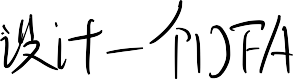 设计一个DFA